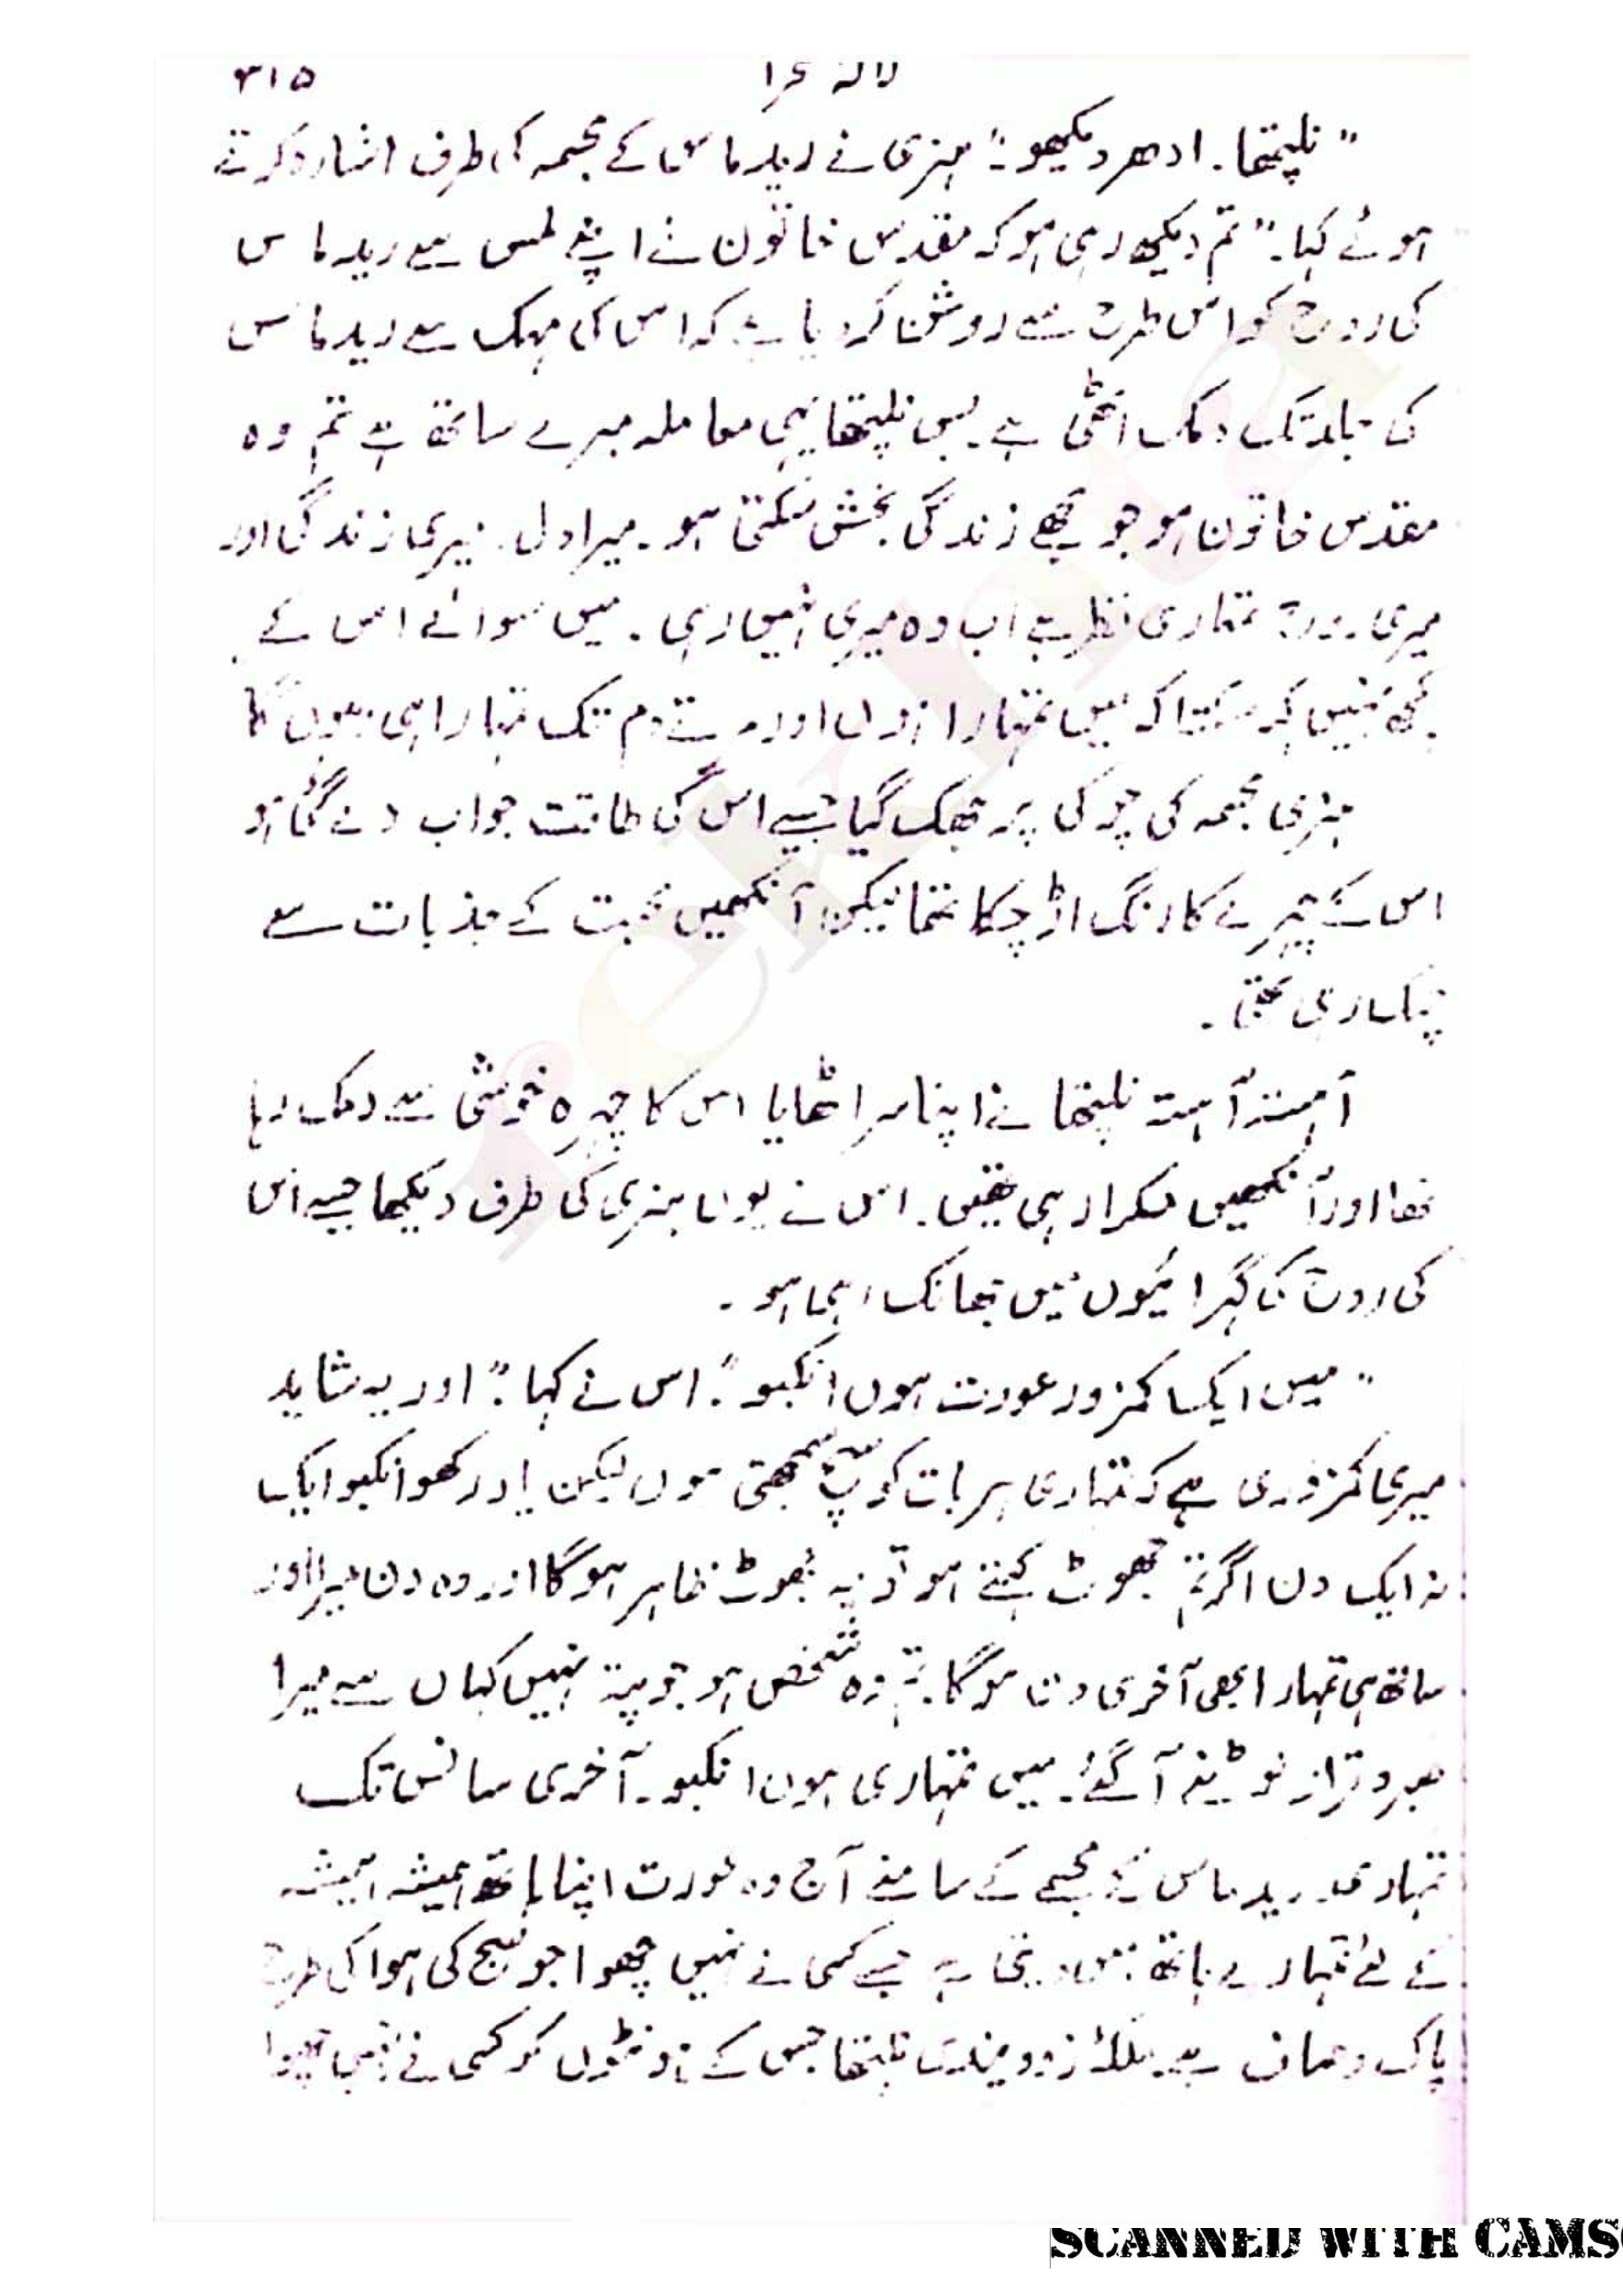 ۳۱۵ لالہ صحرا
"نلیتھا۔ ادھر دیکھو۔" ہنری نے ریدماس کے مجسمہ کی طرف اشارہ کرتے
ہوئے کہا۔ "تم دیکھ رہی ہو کہ مقدس خاتون نے اپنے لمس سے ریدماس
کی روح کو اس طرح سے روشن کر دیا ہے کہ اس کی مہک سے ریدماس
کی جلد تک دمک اٹھی ہے۔ بس نلیتھا یہی معاملہ میرے ساتھ ہے تم وہ
مقدس خاتون ہو جو مجھے زندگی بخش سکتی ہو۔ میرا دل۔ میری زندگی اور
میری روح تمہاری نظر ہے اب وہ میری نہیں رہی۔ میں سوائے اس کے
کچھ نہیں کہہ سکتا کہ میں تمہارا ہوں اور مرتے دم تک تمہارا ہی رہوں گا
ہنری مجسمہ کی چوکی پر جھک گیا جیسے اس کی طاقت جواب دے گئی ہو
اس کے چہرے کا رنگ اڑ چکا تھا لیکن آنکھیں محبت کے جذبات سے
چمک رہی تھی۔
آہستہ آہستہ نلیتھا نے اپنا سر اٹھایا اس کا چہرہ خوشی سے دمک رہا
تھا اور آنکھیں مسکرا رہی تھیں۔ اس نے یوں ہنری کی طرف دیکھا جیسے اس
کی روح کی گہرائیوں میں جھانک رہی ہو۔
"میں ایک کمزور عورت ہوں انکبو"۔ اس نے کہا۔ "اور یہ شاید
میری کمزوری ہے کہ تمہاری ہر بات کو سچ سمجھتی ہوں لیکن یاد رکھو انکبو ایک
نہ ایک دن اگر تم جھوٹ کہتے ہو تو یہ جھوٹ ظاہر ہو گا اور وہ دن میرا اور
ساتھ ہی تمہارا بھی آخری دن ہو گا۔ تم وہ شخص ہو جو پتہ نہیں کہاں سے میرا
صبر و قرار لوٹنے آ گئے۔ میں تمہاری ہوں انکبو۔ آخری سانس تک
تمہاری۔ ریدماس کے مجسمے کے سامنے آج وہ عورت اپنا ہاتھ ہمیشہ ہمیشہ
کے لئے تمہارے ہاتھ میں دیتی ہے جسے کسی نے نہیں چھوا جو صبح کی ہوا کی طرح
پاک و صاف ہے۔ ملکہ نلیتھا جس کے ہونٹوں کو کسی نے نہیں چھوا
SCANNED WITH CAMS